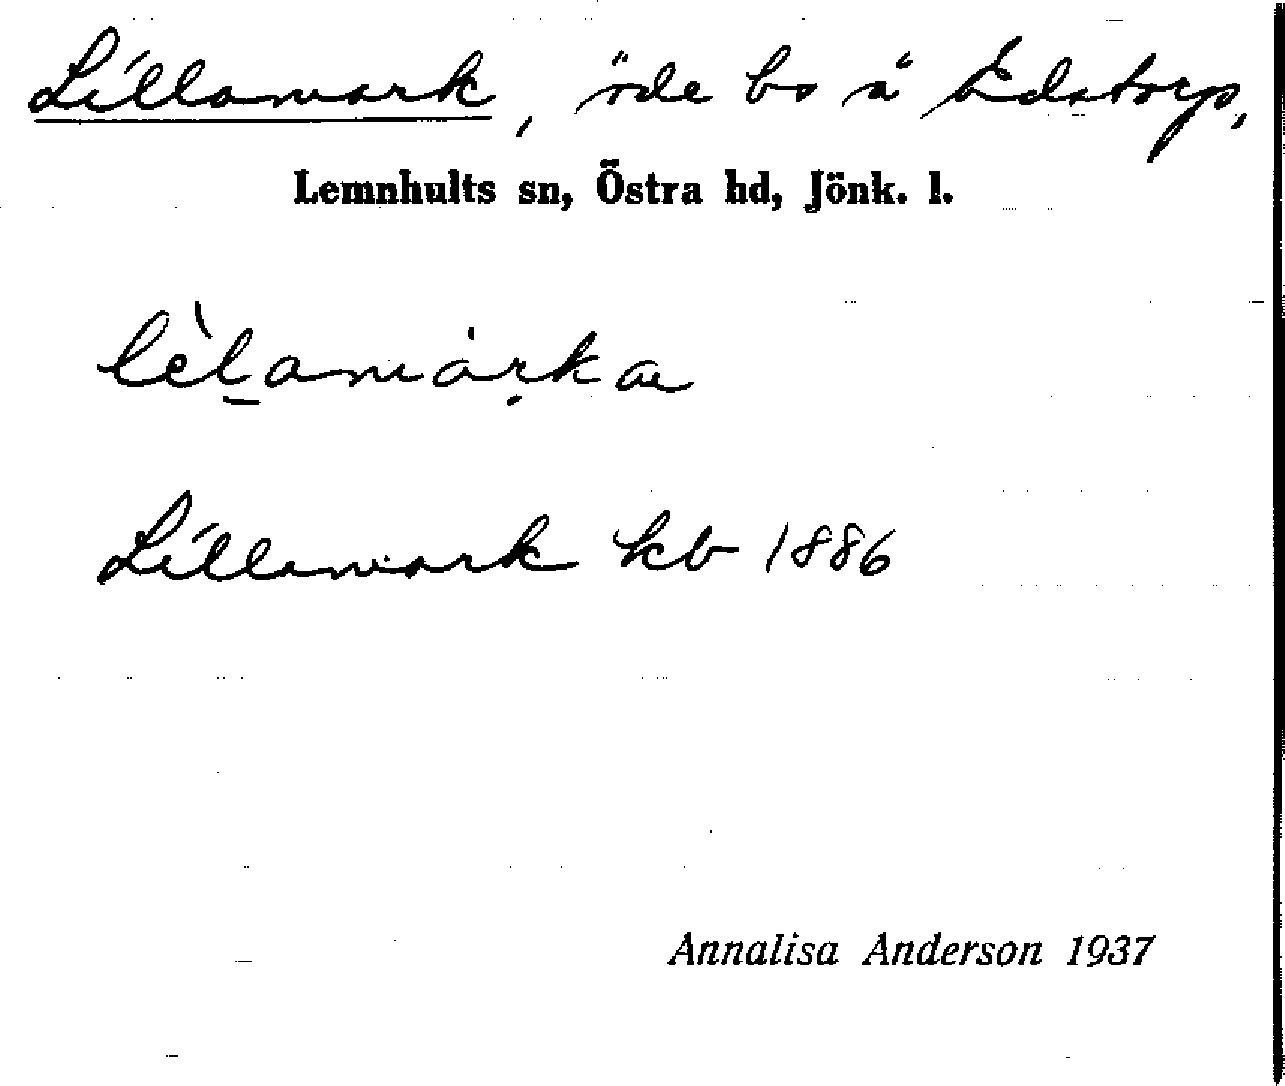 Lillamark, öde bs å Edstorp,
Lemnhults sn, Östra hd, Jönk. l.
lèlamarka
Lillamark kb 1886
Annalisa Anderson 1937